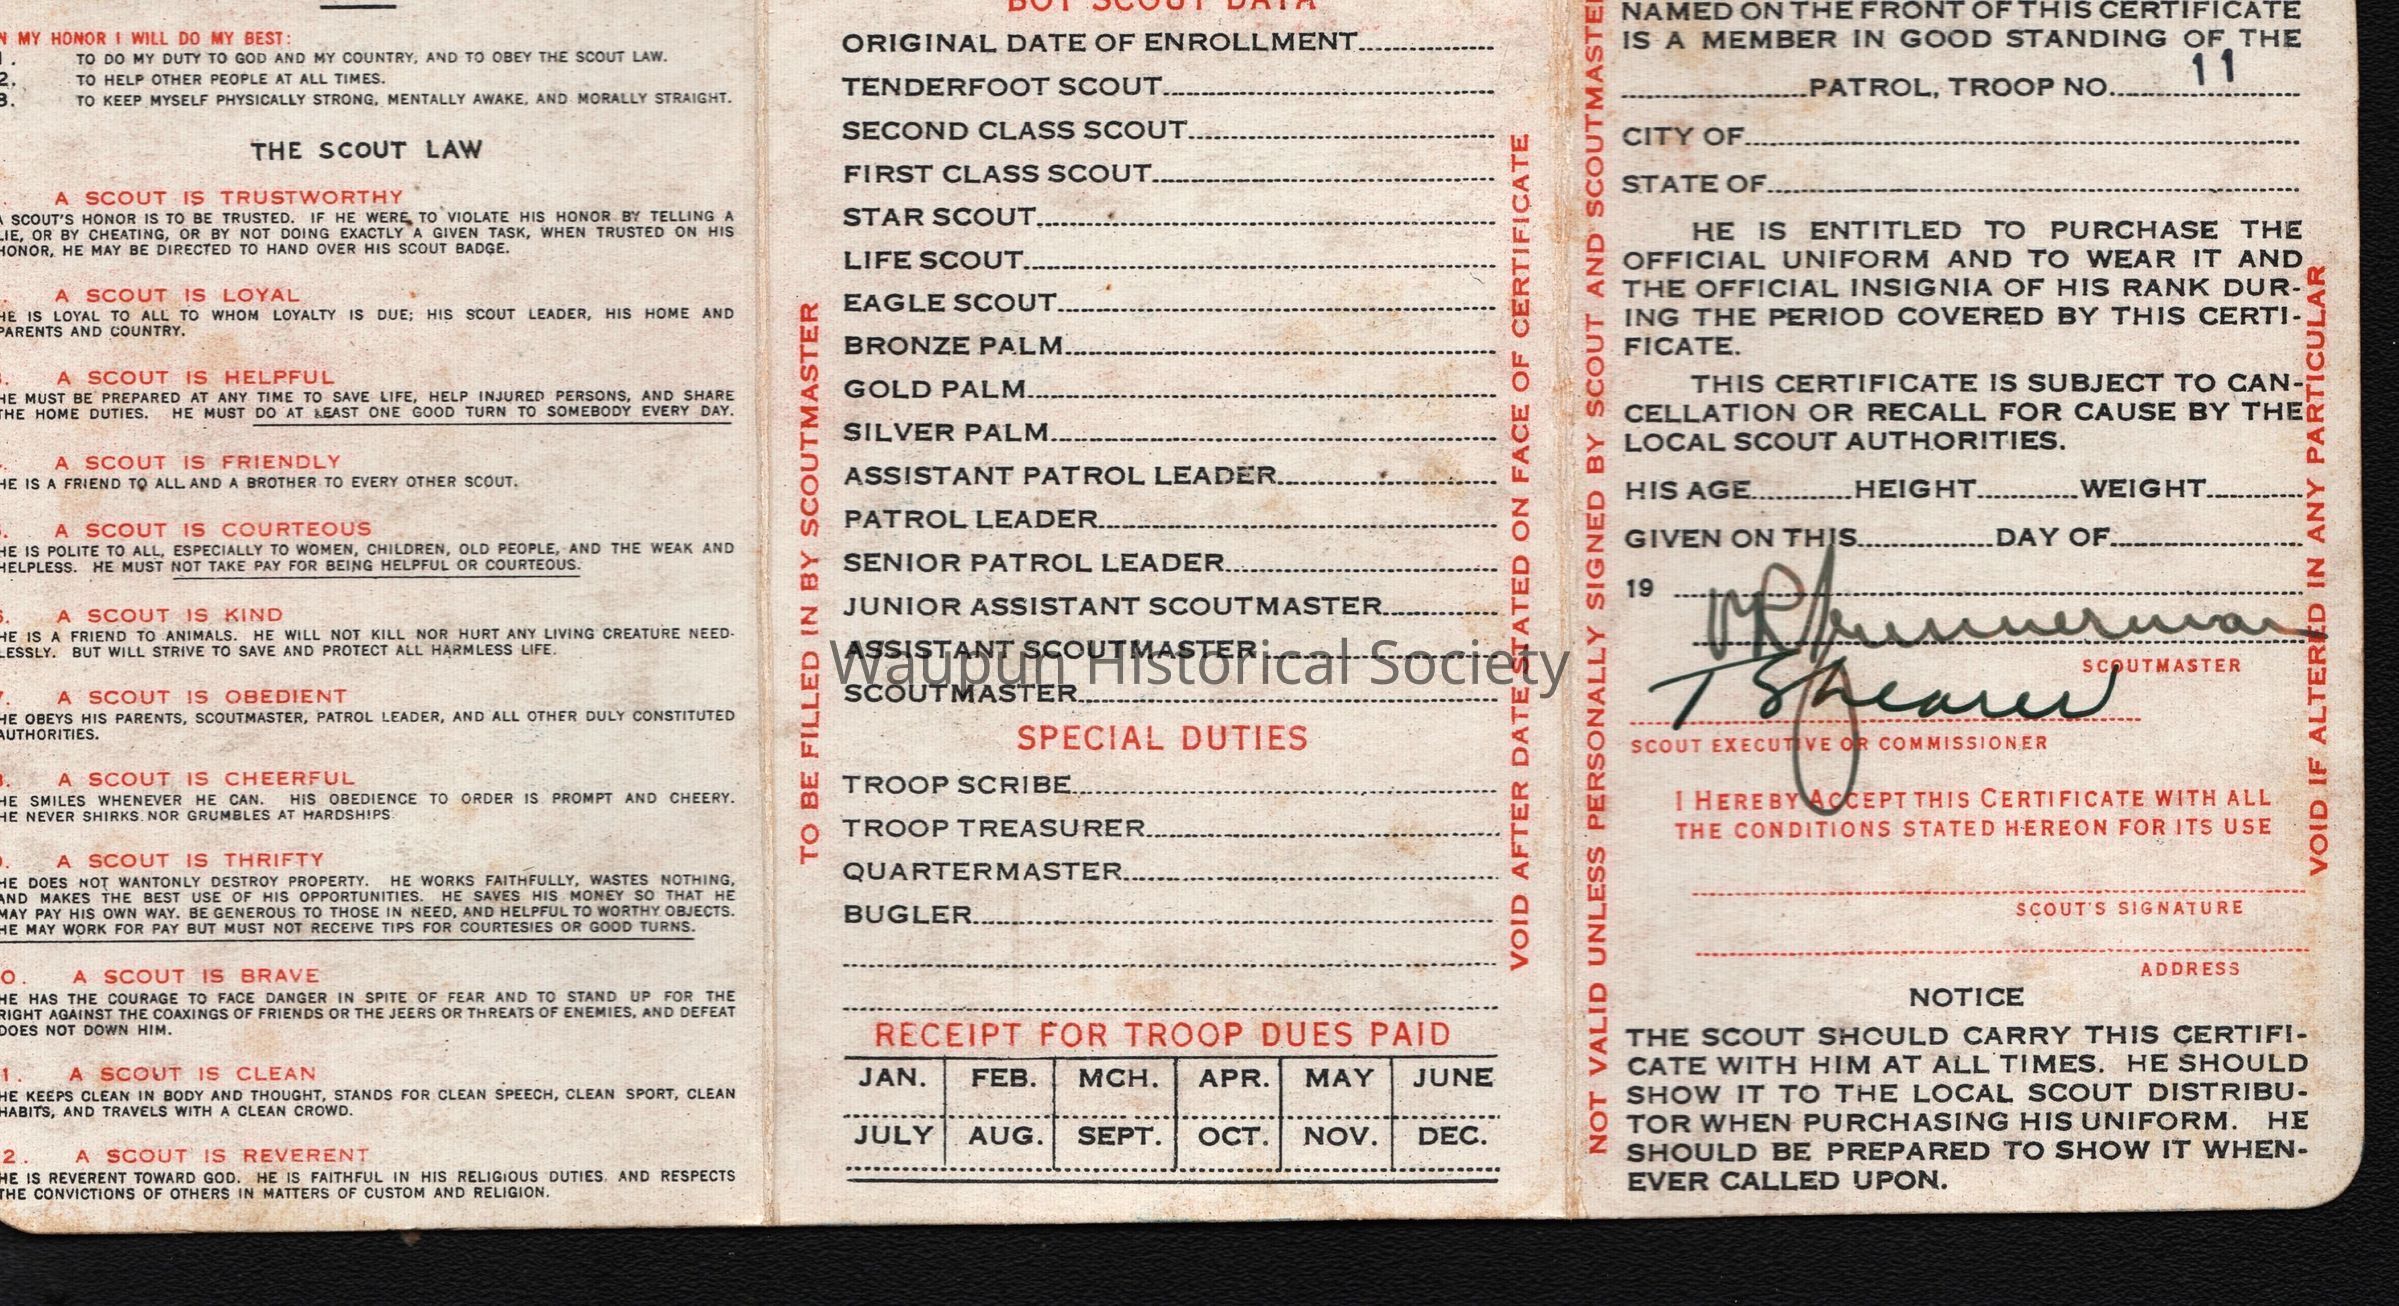 N MY HONOR I WILL DO MY BEST:
TO DO MY DUTY TO GOD AND MY COUNTRY, AND TO OBEY THE SCOUT LAW.
2. TO HELP OTHER PEOPLE AT ALL TIMES.
3. TO KEEP MYSELF PHYSICALLY STRONG, MENTALLY AWAKE, AND MORALLY STRAIGHT.
THE SCOUT LAW
A SCOUT IS TRUSTWORTHY
A SCOUT'S HONOR IS TO BE TRUSTED. IF HE WERE TO VIOLATE HIS HONOR BY TELLING A
LIE, OR BY CHEATING, OR BY NOT DOING EXACTLY A GIVEN TASK, WHEN TRUSTED ON HIS
HONOR, HE MAY BE DIRECTED TO HAND OVER HIS SCOUT BADGE.
A SCOUT IS LOYAL
HE IS LOYAL TO ALL TO WHOM LOYALTY IS DUE; HIS SCOUT LEADER, HIS HOME AND
PARENTS AND COUNTRY.
A SCOUT IS HELPFUL
HE MUST BE PREPARED AT ANY TIME TO SAVE LIFE, HELP INJURED PERSONS, AND SHARE
THE HOME DUTIES. HE MUST DO AT LEAST ONE GOOD TURN TO SOMEBODY EVERY DAY.
A SCOUT IS FRIENDLY
HE IS A FRIEND TO ALL AND A BROTHER TO EVERY OTHER SCOUT.
A SCOUT IS COURTEOUS
HE IS POLITE TO ALL, ESPECIALLY TO WOMEN, CHILDREN, OLD PEOPLE, AND THE WEAK AND
HELPLESS. HE MUST NOT TAKE PAY FOR BEING HELPFUL OR COURTEOUS.
A SCOUT IS KIND
HE IS A FRIEND TO ANIMALS. HE WILL NOT KILL NOR HURT ANY LIVING CREATURE NEED-
LESSLY. BUT WILL STRIVE TO SAVE AND PROTECT ALL HARMLESS LIFE.
A SCOUT IS OBEDIENT
HE OBEYS HIS PARENTS, SCOUTMASTER, PATROL LEADER, AND ALL OTHER DULY CONSTITUTED
AUTHORITIES.
A SCOUT IS CHEERFUL
HE SMILES WHENEVER HE CAN. HIS OBEDIENCE TO ORDER IS PROMPT AND CHEERY.
HE NEVER SHIRKS NOR GRUMBLES AT HARDSHIPS
A SCOUT IS THRIFTY
HE DOES NOT WANTONLY DESTROY PROPERTY. HE WORKS FAITHFULLY, WASTES NOTHING,
AND MAKES THE BEST USE OF HIS OPPORTUNITIES. HE SAVES HIS MONEY SO THAT HE
MAY PAY HIS OWN WAY. BE GENEROUS TO THOSE IN NEED, AND HELPFUL TO WORTHY OBJECTS.
HE MAY WORK FOR PAY BUT MUST NOT RECEIVE TIPS FOR COURTESIES OR GOOD TURNS.
0. A SCOUT IS BRAVE
HE HAS THE COURAGE TO FACE DANGER IN SPITE OF FEAR AND TO STAND UP FOR THE
RIGHT AGAINST THE COAXINGS OF FRIENDS OR THE JEERS OR THREATS OF ENEMIES, AND DEFEAT
DOES NOT DOWN HIM.
1. A SCOUT IS CLEAN
HE KEEPS CLEAN IN BODY AND THOUGHT, STANDS FOR CLEAN SPEECH, CLEAN SPORT, CLEAN
HABITS, AND TRAVELS WITH A CLEAN CROWD.
2. A SCOUT IS REVERENT
HE IS REVERENT TOWARD GOD. HE IS FAITHFUL IN HIS RELIGIOUS DUTIES, AND RESPECTS
THE CONVICTIONS OF OTHERS IN MATTERS OF CUSTOM AND RELIGION.
TO BE FILLED IN BY SCOUTMASTER
BOY SCOUT DATA
ORIGINAL DATE OF ENROLLMENT
TENDERFOOT SCOUT
SECOND CLASS SCOUT
FIRST CLASS SCOUT
STAR SCOUT
LIFE SCOUT
EAGLE SCOUT
BRONZE PALM
GOLD PALM
SILVER PALM
ASSISTANT PATROL LEADER
PATROL LEADER
SENIOR PATROL LEADER
JUNIOR ASSISTANT SCOUTMASTER
ASSISTANT SCOUTMASTER
Waupun Historical Society
SCOUTMASTER
SPECIAL DUTIES
TROOP SCRIBE
TROOP TREASURER
QUARTERMASTER
BUGLER
RECEIPT FOR TROOP DUES PAID
JAN. FEB. MCH. APR. MAY JUNE
JULY AUG. SEPT. OCT. NOV. DEC.
VOID AFTER DATE STATED ON FACE OF CERTIFICATE
NOT VALID UNLESS PERSONALLY SIGNED BY SCOUT AND SCOUTMASTER
NAMED ON THE FRONT OF THIS CERTIFICATE
IS A MEMBER IN GOOD STANDING OF THE
PATROL, TROOP NO. 11
CITY OF
STATE OF
HE IS ENTITLED TO PURCHASE THE
OFFICIAL UNIFORM AND TO WEAR IT AND
THE OFFICIAL INSIGNIA OF HIS RANK DUR-
ING THE PERIOD COVERED BY THIS CERTI-
FICATE.
THIS CERTIFICATE IS SUBJECT TO CAN-
CELLATION OR RECALL FOR CAUSE BY THE
LOCAL SCOUT AUTHORITIES.
HIS AGE HEIGHT WEIGHT
GIVEN ON THIS DAY OF
19
SCOUTMASTER
T Shearer
SCOUT EXECUTIVE OR COMMISSIONER
I HEREBY ACCEPT THIS CERTIFICATE WITH ALL
THE CONDITIONS STATED HEREON FOR ITS USE
SCOUT'S SIGNATURE
ADDRESS
NOTICE
THE SCOUT SHOULD CARRY THIS CERTIFI-
CATE WITH HIM AT ALL TIMES. HE SHOULD
SHOW IT TO THE LOCAL SCOUT DISTRIBU-
TOR WHEN PURCHASING HIS UNIFORM. HE
SHOULD BE PREPARED TO SHOW IT WHEN-
EVER CALLED UPON.
VOID IF ALTERED IN ANY PARTICULAR